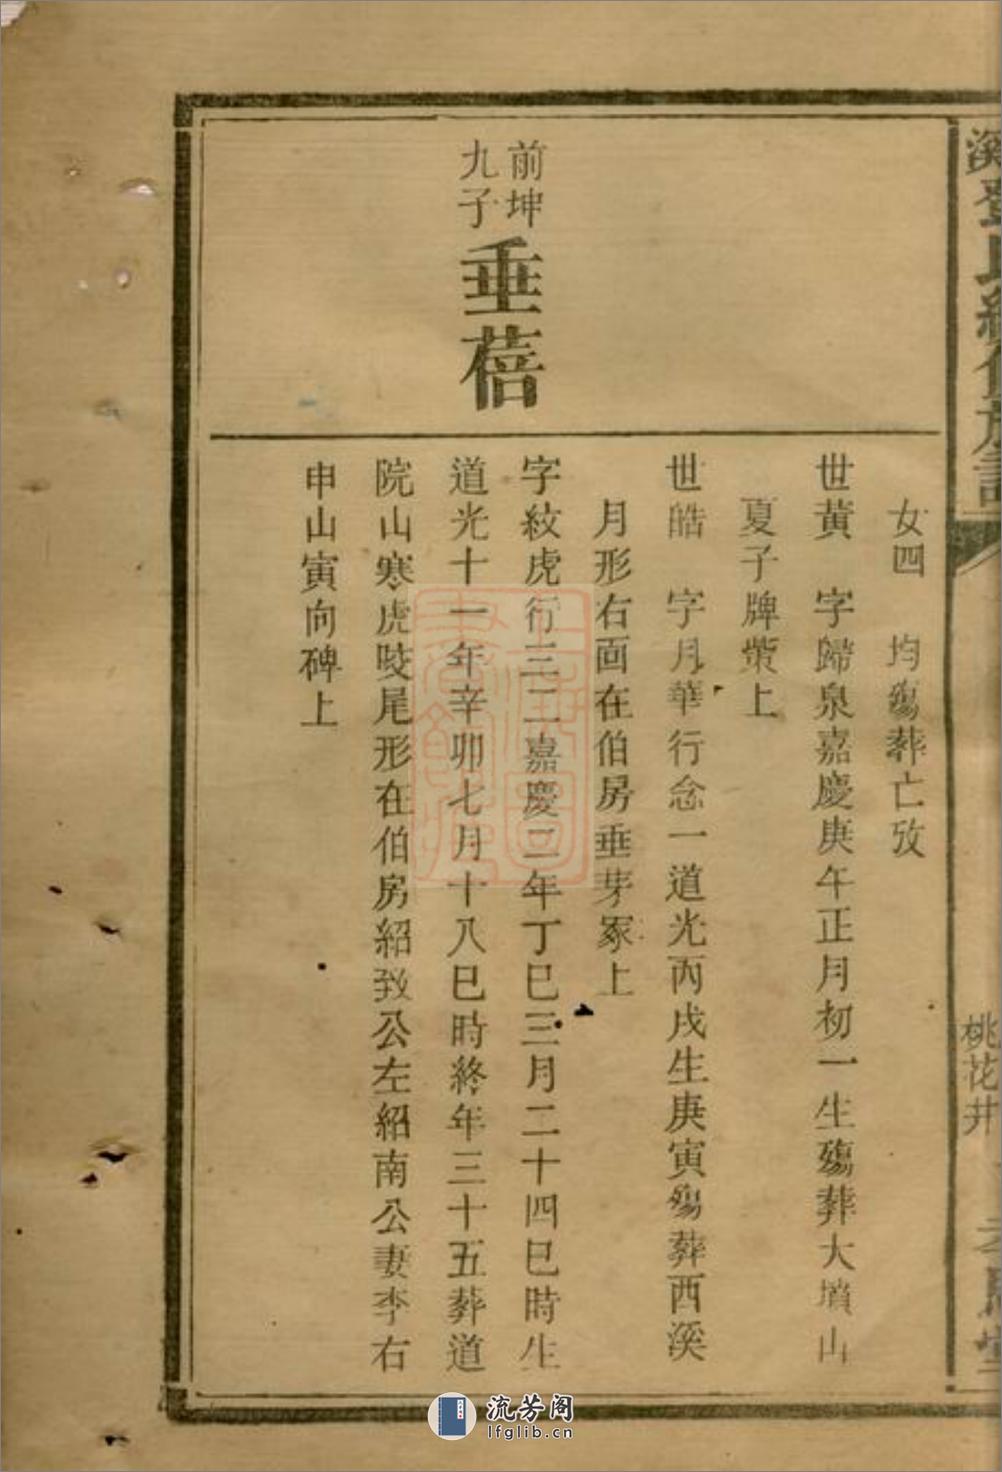 溪鄧氏續修族譜
桃花井
女四　均殤葬亡攷
世黃　字歸泉嘉慶庚午正月初一生殤葬大墳山
夏子牌塋上
世皓　字月華行念一道光丙戌生庚寅殤葬西溪
月形右面在伯房垂芽冢上
前坤
九子
垂蓓
字紋虎行三二嘉慶二年丁巳三月二十四巳時生
道光十一年辛卯七月十八巳時終年三十五葬道
院山寒虎咬尾形在伯房紹致公左紹南公妻李右
申山寅向碑上
上海圖
書館藏
流芳阁
lfglib.cn